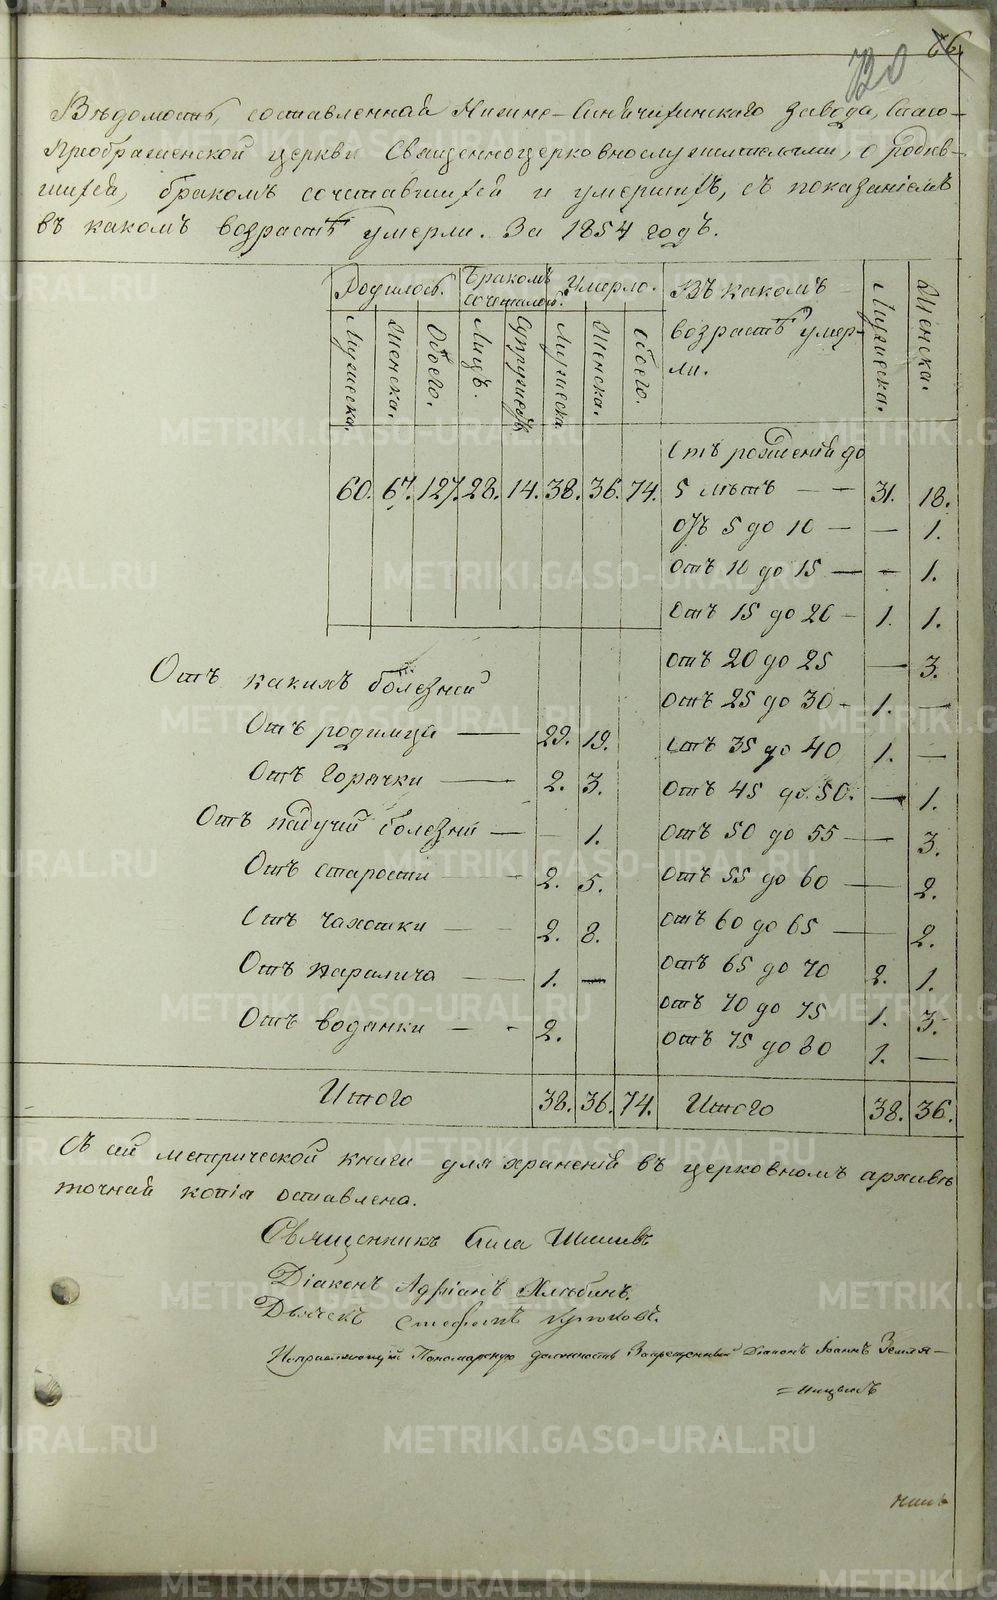 66.
720
Вѣдомость, составленная Нижне-Синячихинскаго завода, Спасо-
Преображенской церкви Священноцерковнослужителями, о родив-
шихся, бракомъ сочетавшихся и умершихъ, съ показаніемъ
въ какомъ возрастѣ умерли. За 1854 годъ.
Родилось. Бракомъ сочеталось. Умерло. Въ какомъ возрастѣ умер-
ли. Мужеска. Женска.
Мужеска. Женска. Обоего. Лицъ. Супружествъ. Мужеска. Женска. Обоего.
Отъ рожденія до
60. 67. 127. 28. 14. 38. 36. 74. 5 лѣтъ — — 31. 18.
отъ 5 до 10 — — 1.
отъ 10 до 15 — — 1.
отъ 15 до 20 — 1. 1.
отъ 20 до 25 — 3.
отъ 25 до 30 - 1. —
отъ 35 до 40 1. —
отъ 45 до 50. — 1.
отъ 50 до 55 — — 3.
отъ 55 до 60 — 2.
отъ 60 до 65 — 2.
отъ 65 до 70 2. 1.
отъ 70 до 75 1. 3.
отъ 75 до 80 1. —
Отъ какихъ болезней
Отъ родимца — 29. 19.
Отъ горячки — 2. 3.
Отъ падучей болезни — — 1.
Отъ старости — - 2. 5.
Отъ чахотки — — 2. 8.
Отъ паралича — — 1. —
Отъ водянки — - 2.
Итого 38. 36. 74. Итого 38. 36.
Съ сей метрической книги для храненія въ церковномъ архивѣ
точная копія оставлена.
Священникъ Сила Шишевъ
Діаконъ Адріанъ Хлѣбинъ.
Дьячекъ Стефанъ Крюковъ.
Исправляющій Пономарскую должность Запрещенный Діаконъ Іоаннъ Земля-
=ницынъ
METRIKI.GASO-URAL.RU